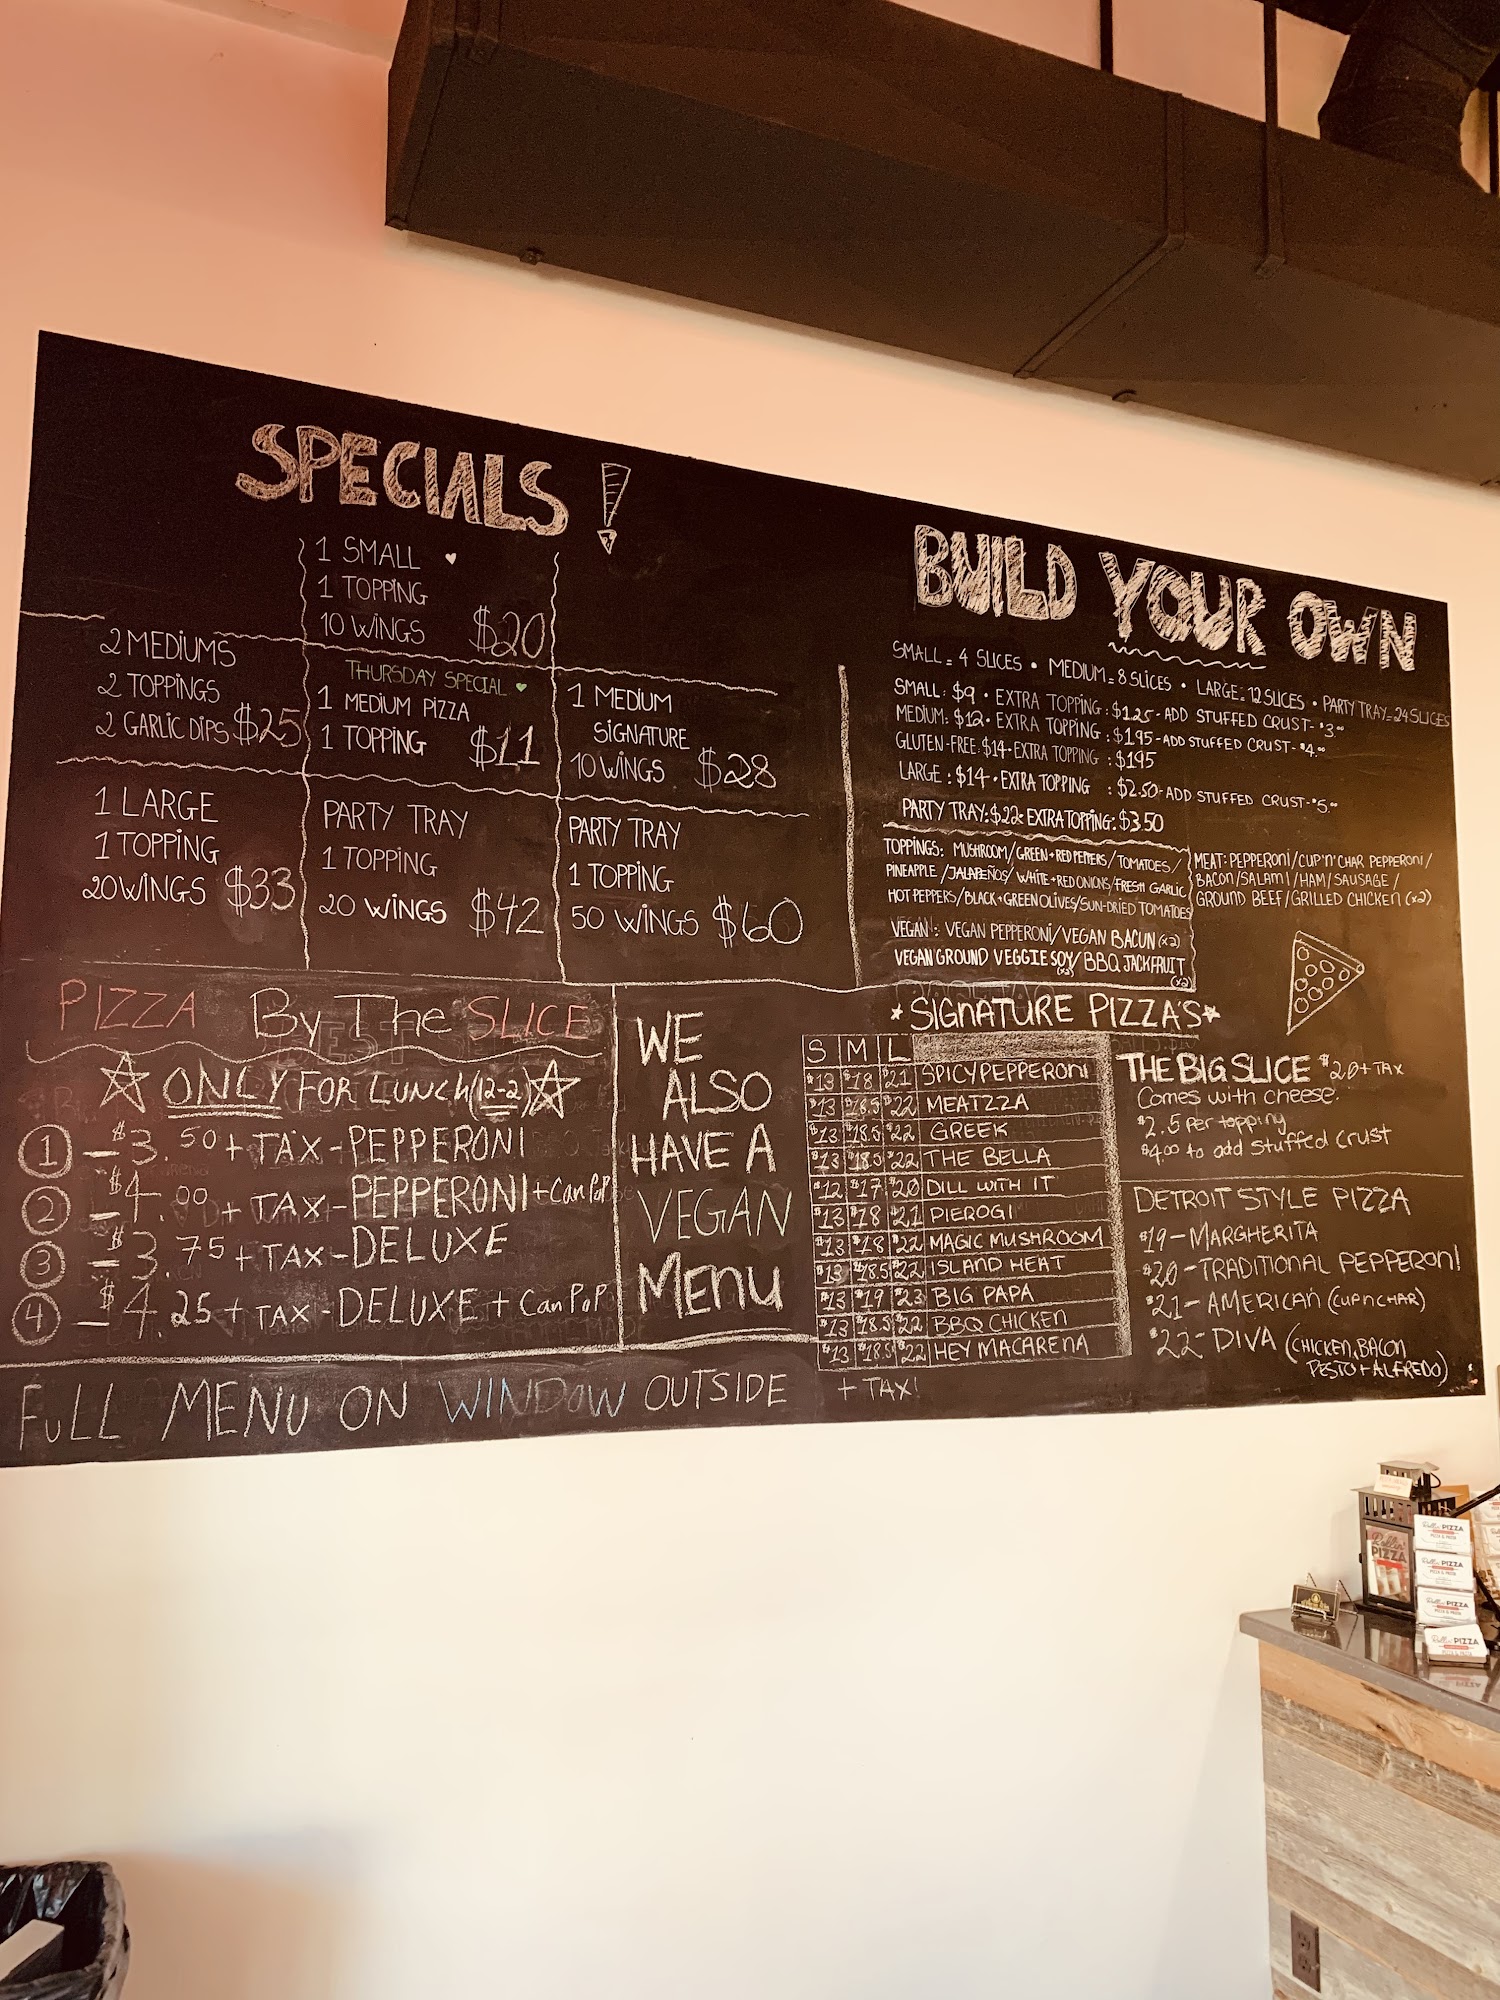 SPECIALS!
1 SMALL
1 TOPPING
10 WINGS $20
2 MEDIUMS
2 TOPPINGS
2 GARLIC DIPS $25
THURSDAY SPECIAL
1 MEDIUM PIZZA
1 TOPPING $11
1 MEDIUM
SIGNATURE
10 WINGS $28
1 LARGE
1 TOPPING
20 WINGS $33
PARTY TRAY
1 TOPPING
20 WINGS $42
PARTY TRAY
1 TOPPING
50 WINGS $60
PIZZA By The SLICE
ONLY FOR LUNCH (12-2)
1 - $3.50 + TAX - PEPPERONI
2 - $4.00 + TAX - PEPPERONI + Can PoP
3 - $3.75 + TAX - DELUXE
4 - $4.25 + TAX - DELUXE + Can PoP
WE
ALSO
HAVE A
VEGAN
MENU
FULL MENU ON WINDOW OUTSIDE
BUILD YOUR OWN
SMALL = 4 SLICES • MEDIUM = 8 SLICES • LARGE = 12 SLICES • PARTY TRAY = 24 SLICES
SMALL: $9 • EXTRA TOPPING: $1.25 - ADD STUFFED CRUST - $3.00
MEDIUM: $12 • EXTRA TOPPING: $1.95 - ADD STUFFED CRUST - $4.00
GLUTEN-FREE: $14 • EXTRA TOPPING: $1.95
LARGE: $14 • EXTRA TOPPING: $2.50 - ADD STUFFED CRUST - $5.00
PARTY TRAY: $22 • EXTRA TOPPING: $3.50
TOPPINGS: MUSHROOM/GREEN+RED PEPPERS/TOMATOES/
PINEAPPLE/JALAPEÑOS/WHITE+RED ONIONS/FRESH GARLIC
HOT PEPPERS/BLACK+GREEN OLIVES/SUN-DRIED TOMATOES
VEGAN: VEGAN PEPPERONI/VEGAN BACUN (x2)
VEGAN GROUND VEGGIE SOY (x2)/BBQ JACKFRUIT (x2)
MEAT: PEPPERONI/CUP'N'CHAR PEPPERONI/
BACON/SALAMI/HAM/SAUSAGE/
GROUND BEEF/GRILLED CHICKEN (x2)
*SIGNATURE PIZZA'S*
S M L
$13 $18 $21 SPICY PEPPERONI
$13 $18.5 $22 MEATZZA
$13 $18.5 $22 GREEK
$13 $18.5 $22 THE BELLA
$12 $17 $20 DILL WITH IT
$13 $18 $21 PIEROGI
$13 $18 $22 MAGIC MUSHROOM
$13 $18.5 $22 ISLAND HEAT
$13 $19 $23 BIG PAPA
$13 $18.5 $22 BBQ CHICKEN
$13 $18.5 $22 HEY MACARENA
+ TAX!
THE BIG SLICE $20 + TAX
Comes with cheese.
$2.5 Per topping
$4.00 to add Stuffed Crust
DETROIT STYLE PIZZA
$19 - MARGHERITA
$20 - TRADITIONAL PEPPERONI
$21 - AMERICAN (CUP N CHAR)
$22 - DIVA (CHICKEN, BACON
PESTO + ALFREDO)
Rollin' PIZZA
Rollin' PIZZA
Rollin' PIZZA
Rollin' PIZZA
Rollin' PIZZA